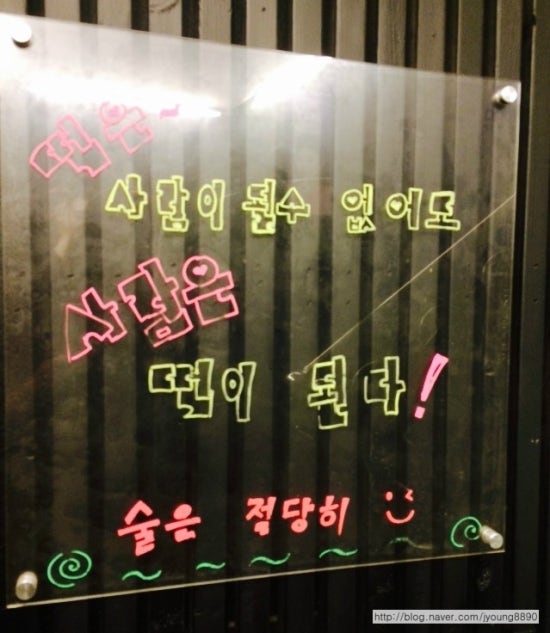 떡은~
사람이 될수 없어도
사람은
떡이 된다!
술은 적당히
http://blog.naver.com/jyoung8890